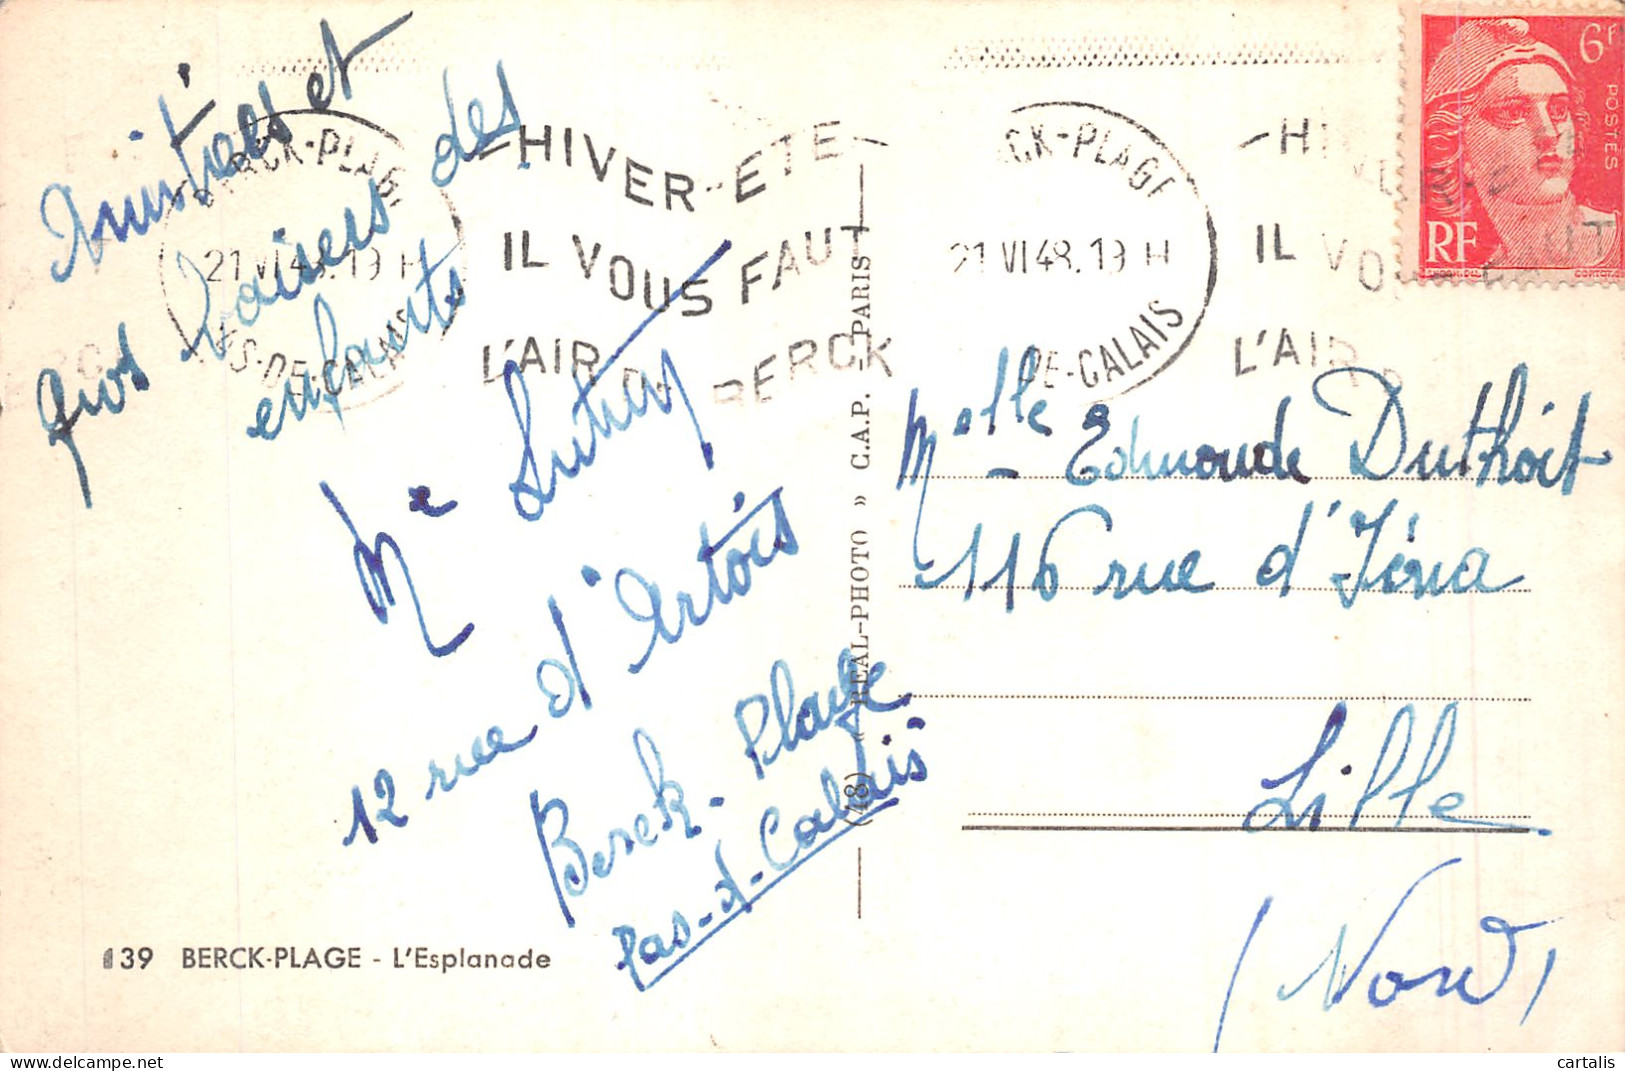 Amitiés et
gros baisers des
enfants
Me
12 rue d'Artois
Berck-Plage
Pas-d-Calais
139 BERCK-PLAGE - L'Esplanade
BERCK-PLAGE
21 VI 48. 19 H
PAS-DE-CALAIS
HIVER-ETE
IL VOUS FAUT
L'AIR DE BERCK
(48) « REAL-PHOTO » C.A.P. - PARIS
CK-PLAGE
21 VI 48. 19 H
DE-CALAIS
IL VOUS FAUT
L'AIR
6F
POSTES
RF
Melle Edmonde Duthoit
116 rue d'Iéna
Lille
(Nord)
cartalis